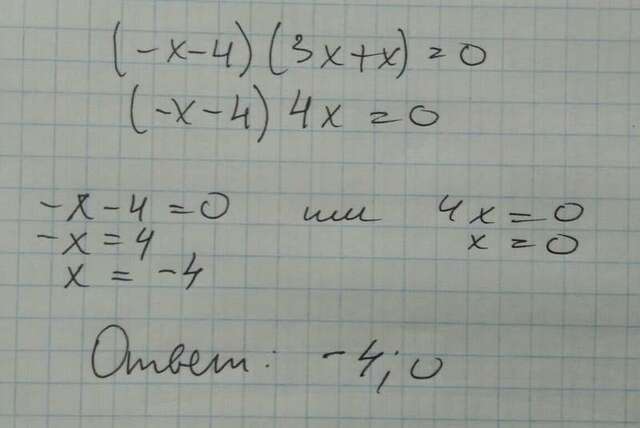 (-x-4)(3x+x)=0
(-x-4)4x=0
-x-4=0 или 4x=0
-x=4 x=0
x=-4
Ответ: -4;0